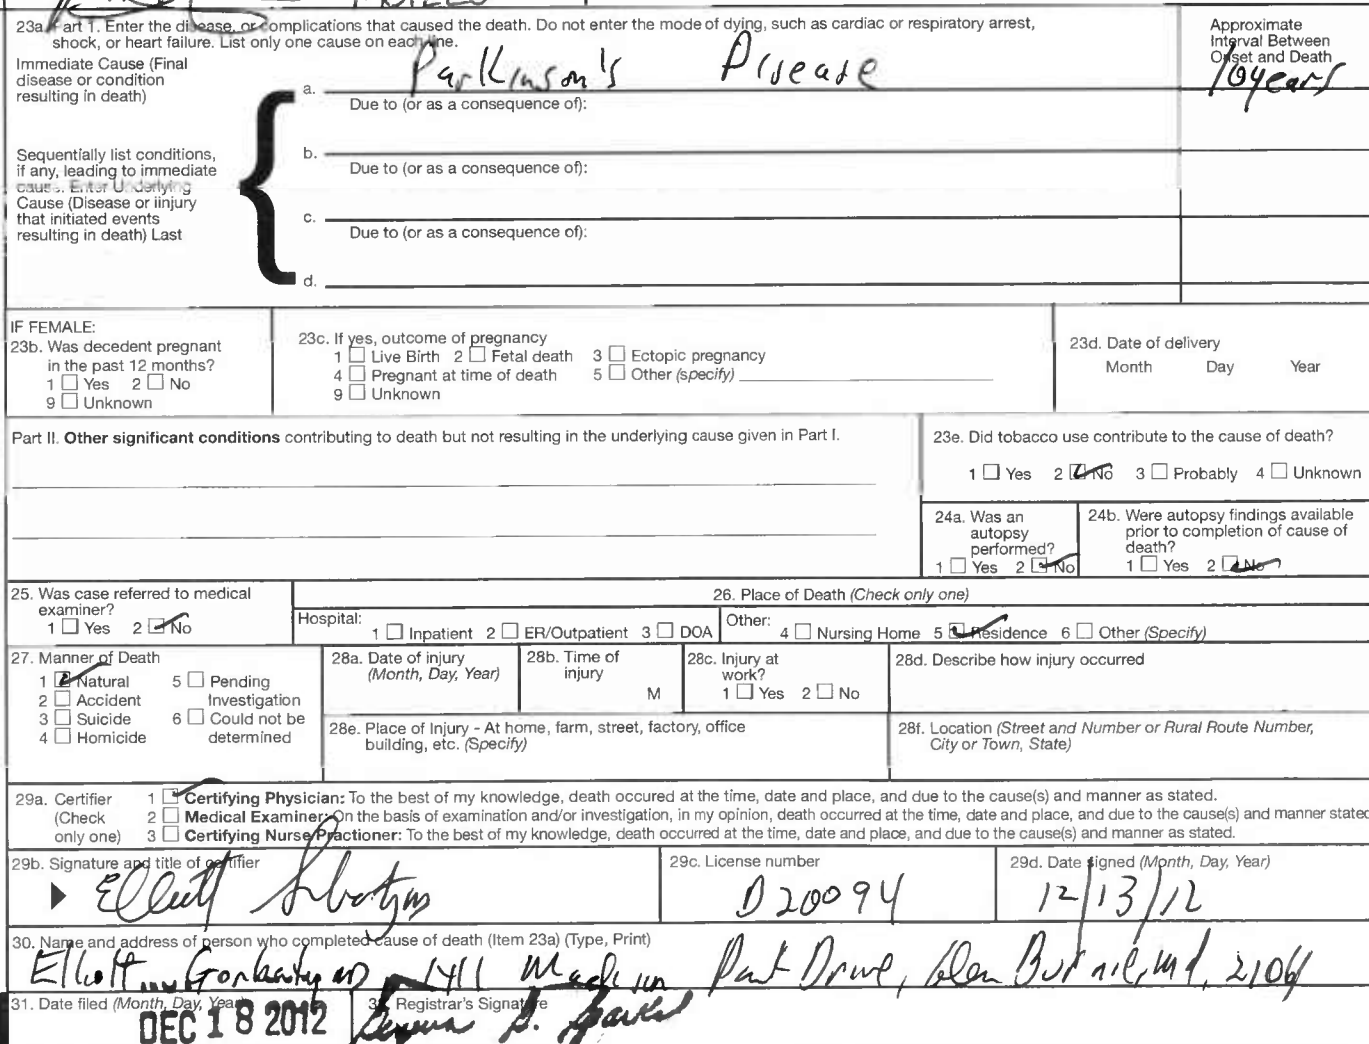 23a. Part 1. Enter the disease, or complications that caused the death. Do not enter the mode of dying, such as cardiac or respiratory arrest,
shock, or heart failure. List only one cause on each line.
Approximate
Interval Between
Onset and Death
Immediate Cause (Final
disease or condition
resulting in death)
a. Parkinson's Disease
10 years
Due to (or as a consequence of):
Sequentially list conditions,
if any, leading to immediate
cause. Enter Underlying
Cause (Disease or iinjury
that initiated events
resulting in death) Last
b.
Due to (or as a consequence of):
c.
Due to (or as a consequence of):
d.
IF FEMALE:
23b. Was decedent pregnant
in the past 12 months?
1 Yes 2 No
9 Unknown
23c. If yes, outcome of pregnancy
1 Live Birth 2 Fetal death 3 Ectopic pregnancy
4 Pregnant at time of death 5 Other (specify)
9 Unknown
23d. Date of delivery
Month Day Year
Part II. Other significant conditions contributing to death but not resulting in the underlying cause given in Part I.
23e. Did tobacco use contribute to the cause of death?
1 Yes 2 No 3 Probably 4 Unknown
24a. Was an
autopsy
performed?
1 Yes 2 No
24b. Were autopsy findings available
prior to completion of cause of
death?
1 Yes 2 No
25. Was case referred to medical
examiner?
1 Yes 2 No
26. Place of Death (Check only one)
Hospital: 1 Inpatient 2 ER/Outpatient 3 DOA
Other: 4 Nursing Home 5 Residence 6 Other (Specify)
27. Manner of Death
1 Natural 5 Pending
2 Accident Investigation
3 Suicide 6 Could not be
4 Homicide determined
28a. Date of injury
(Month, Day, Year)
28b. Time of
injury
M
28c. Injury at
work?
1 Yes 2 No
28d. Describe how injury occurred
28e. Place of Injury - At home, farm, street, factory, office
building, etc. (Specify)
28f. Location (Street and Number or Rural Route Number,
City or Town, State)
29a. Certifier
(Check
only one)
1 Certifying Physician: To the best of my knowledge, death occured at the time, date and place, and due to the cause(s) and manner as stated.
2 Medical Examiner: On the basis of examination and/or investigation, in my opinion, death occurred at the time, date and place, and due to the cause(s) and manner stated
3 Certifying Nurse Practioner: To the best of my knowledge, death occurred at the time, date and place, and due to the cause(s) and manner as stated.
29b. Signature and title of certifier
Elliott
29c. License number
D20094
29d. Date signed (Month, Day, Year)
12/13/12
30. Name and address of person who completed cause of death (Item 23a) (Type, Print)
Elliott Gorbaty MD 1411 Madison Park Drive, Glen Burnie, Md, 21061
31. Date filed (Month, Day, Year)
DEC 18 2012
Registrar's Signature